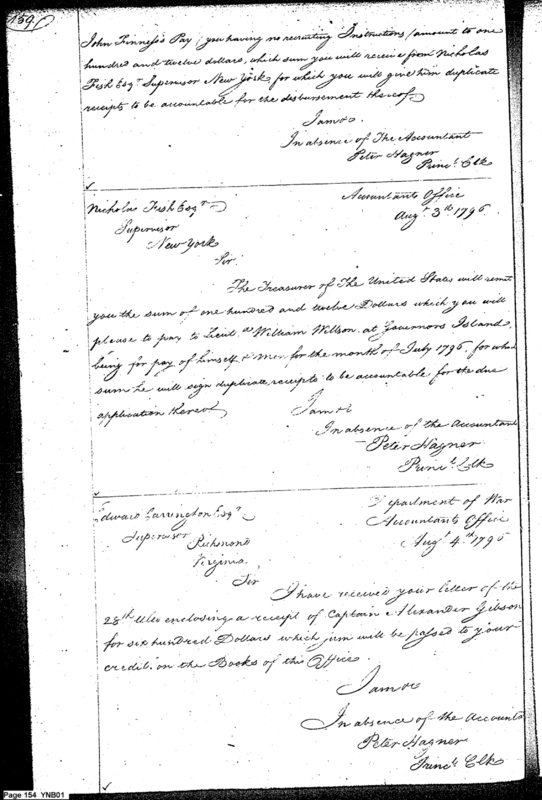 154
John Finness's Pay; you having no recruiting Instructions /amount to one
hundred and twelve dollars, which sum you will receive from Nicholas
Fish Esqr Supervisor New York for which you will give him duplicate
receipts to be accountable for the disbursement thereof
I am &c.
In absence of The Accountant
Peter Hagner
Princl. Clk
Nicholas Fish Esqr
Supervisor
New York
Accountants Office
Augt 3th 1796
Sir
The Treasurer of The United States will remit
you the sum of one hundred and twelve Dollars which you will
please to pay to Lieut William Willson at Governors Island,
being for pay of himself & men for the month of July 1796, for which
sum he will sign duplicate receipts to be accountable for the due
application thereof
I am &c
In absence of the Accountant
Peter Hagner
Princl. Clk
Edward Carrington Esqr
Supervisor
Richmond
Virginia
Department of War
Accountants Office
Augt 4th 1796
Sir
I have received your letter of the
28th Ulto enclosing a receipt of Captain Alexander Gibson
for six hundred Dollars which sum will be passed to your
credit on the Books of this Office.
I am &c
In absence of the Accounta
Peter Hagner
Princl. Clk
Page 154 YNB01